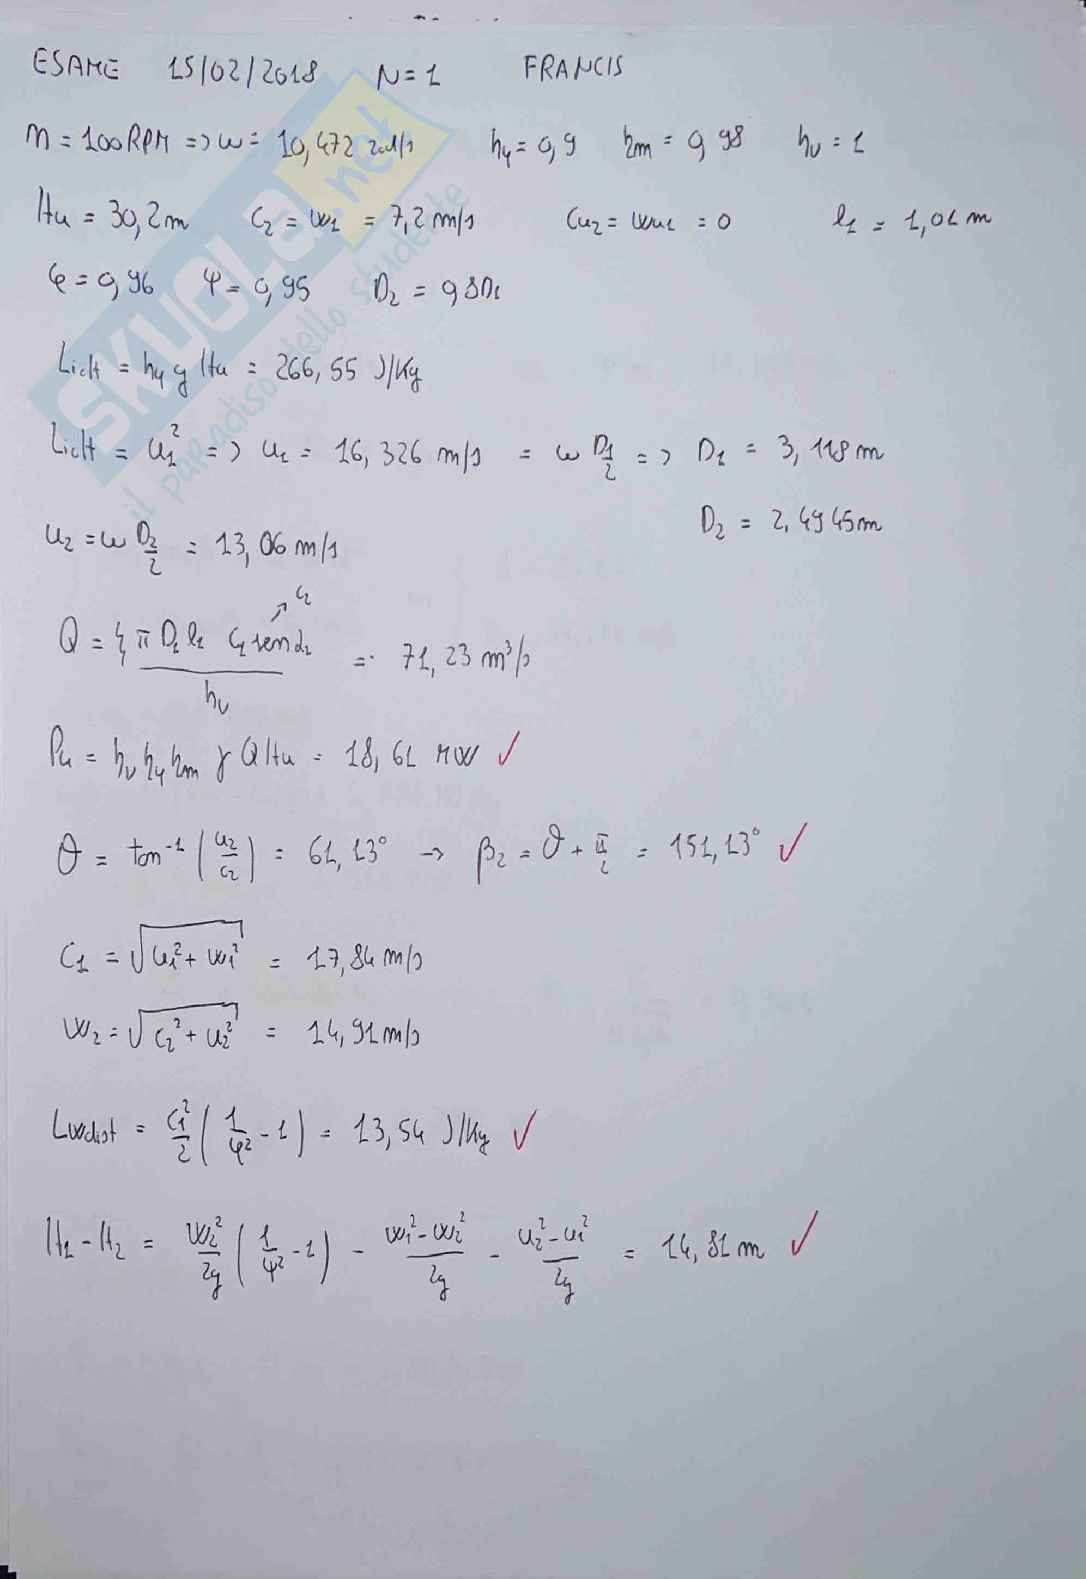 ESAME 15/02/2018 N=1 FRANCIS
n = 100RPM => ω = 10,472 rad/s hy = 0,9 ηm = 0,98 hv = 1
Hu = 30,2m C2 = w1 = 7,2 m/s Cu2 = wu1 = 0 l1 = 1,01 m
φ = 0,96 ψ = 0,95 D2 = 0,8D1
Lid,t = hy g Hu = 266,55 J/Kg
Lid,t = u1² => u1 = 16,326 m/s = ω D1/2 => D1 = 3,118 m
D2 = 2,4945m
u2 = ω D2/2 = 13,06 m/s
Q = ξ π D1 l1 C1 senα1 / hv = 71,23 m³/s
Pu = hv hy ηm γ Q Hu = 18,61 MW ✓
θ = tan⁻¹ (u2/c2) = 61,13° → β2 = θ + π/2 = 151,13° ✓
C1 = √(u1² + w1²) = 17,84 m/s
W2 = √(C2² + u2²) = 14,91 m/s
Lwdist = C1²/2 (1/φ² - 1) = 13,54 J/Kg ✓
H1 - H2 = W2²/2g (1/ψ² - 1) - (W1² - W2²)/2g - (u2² - u1²)/2g = 14,81 m ✓
SKUOLA.net
il paradiso dello studente